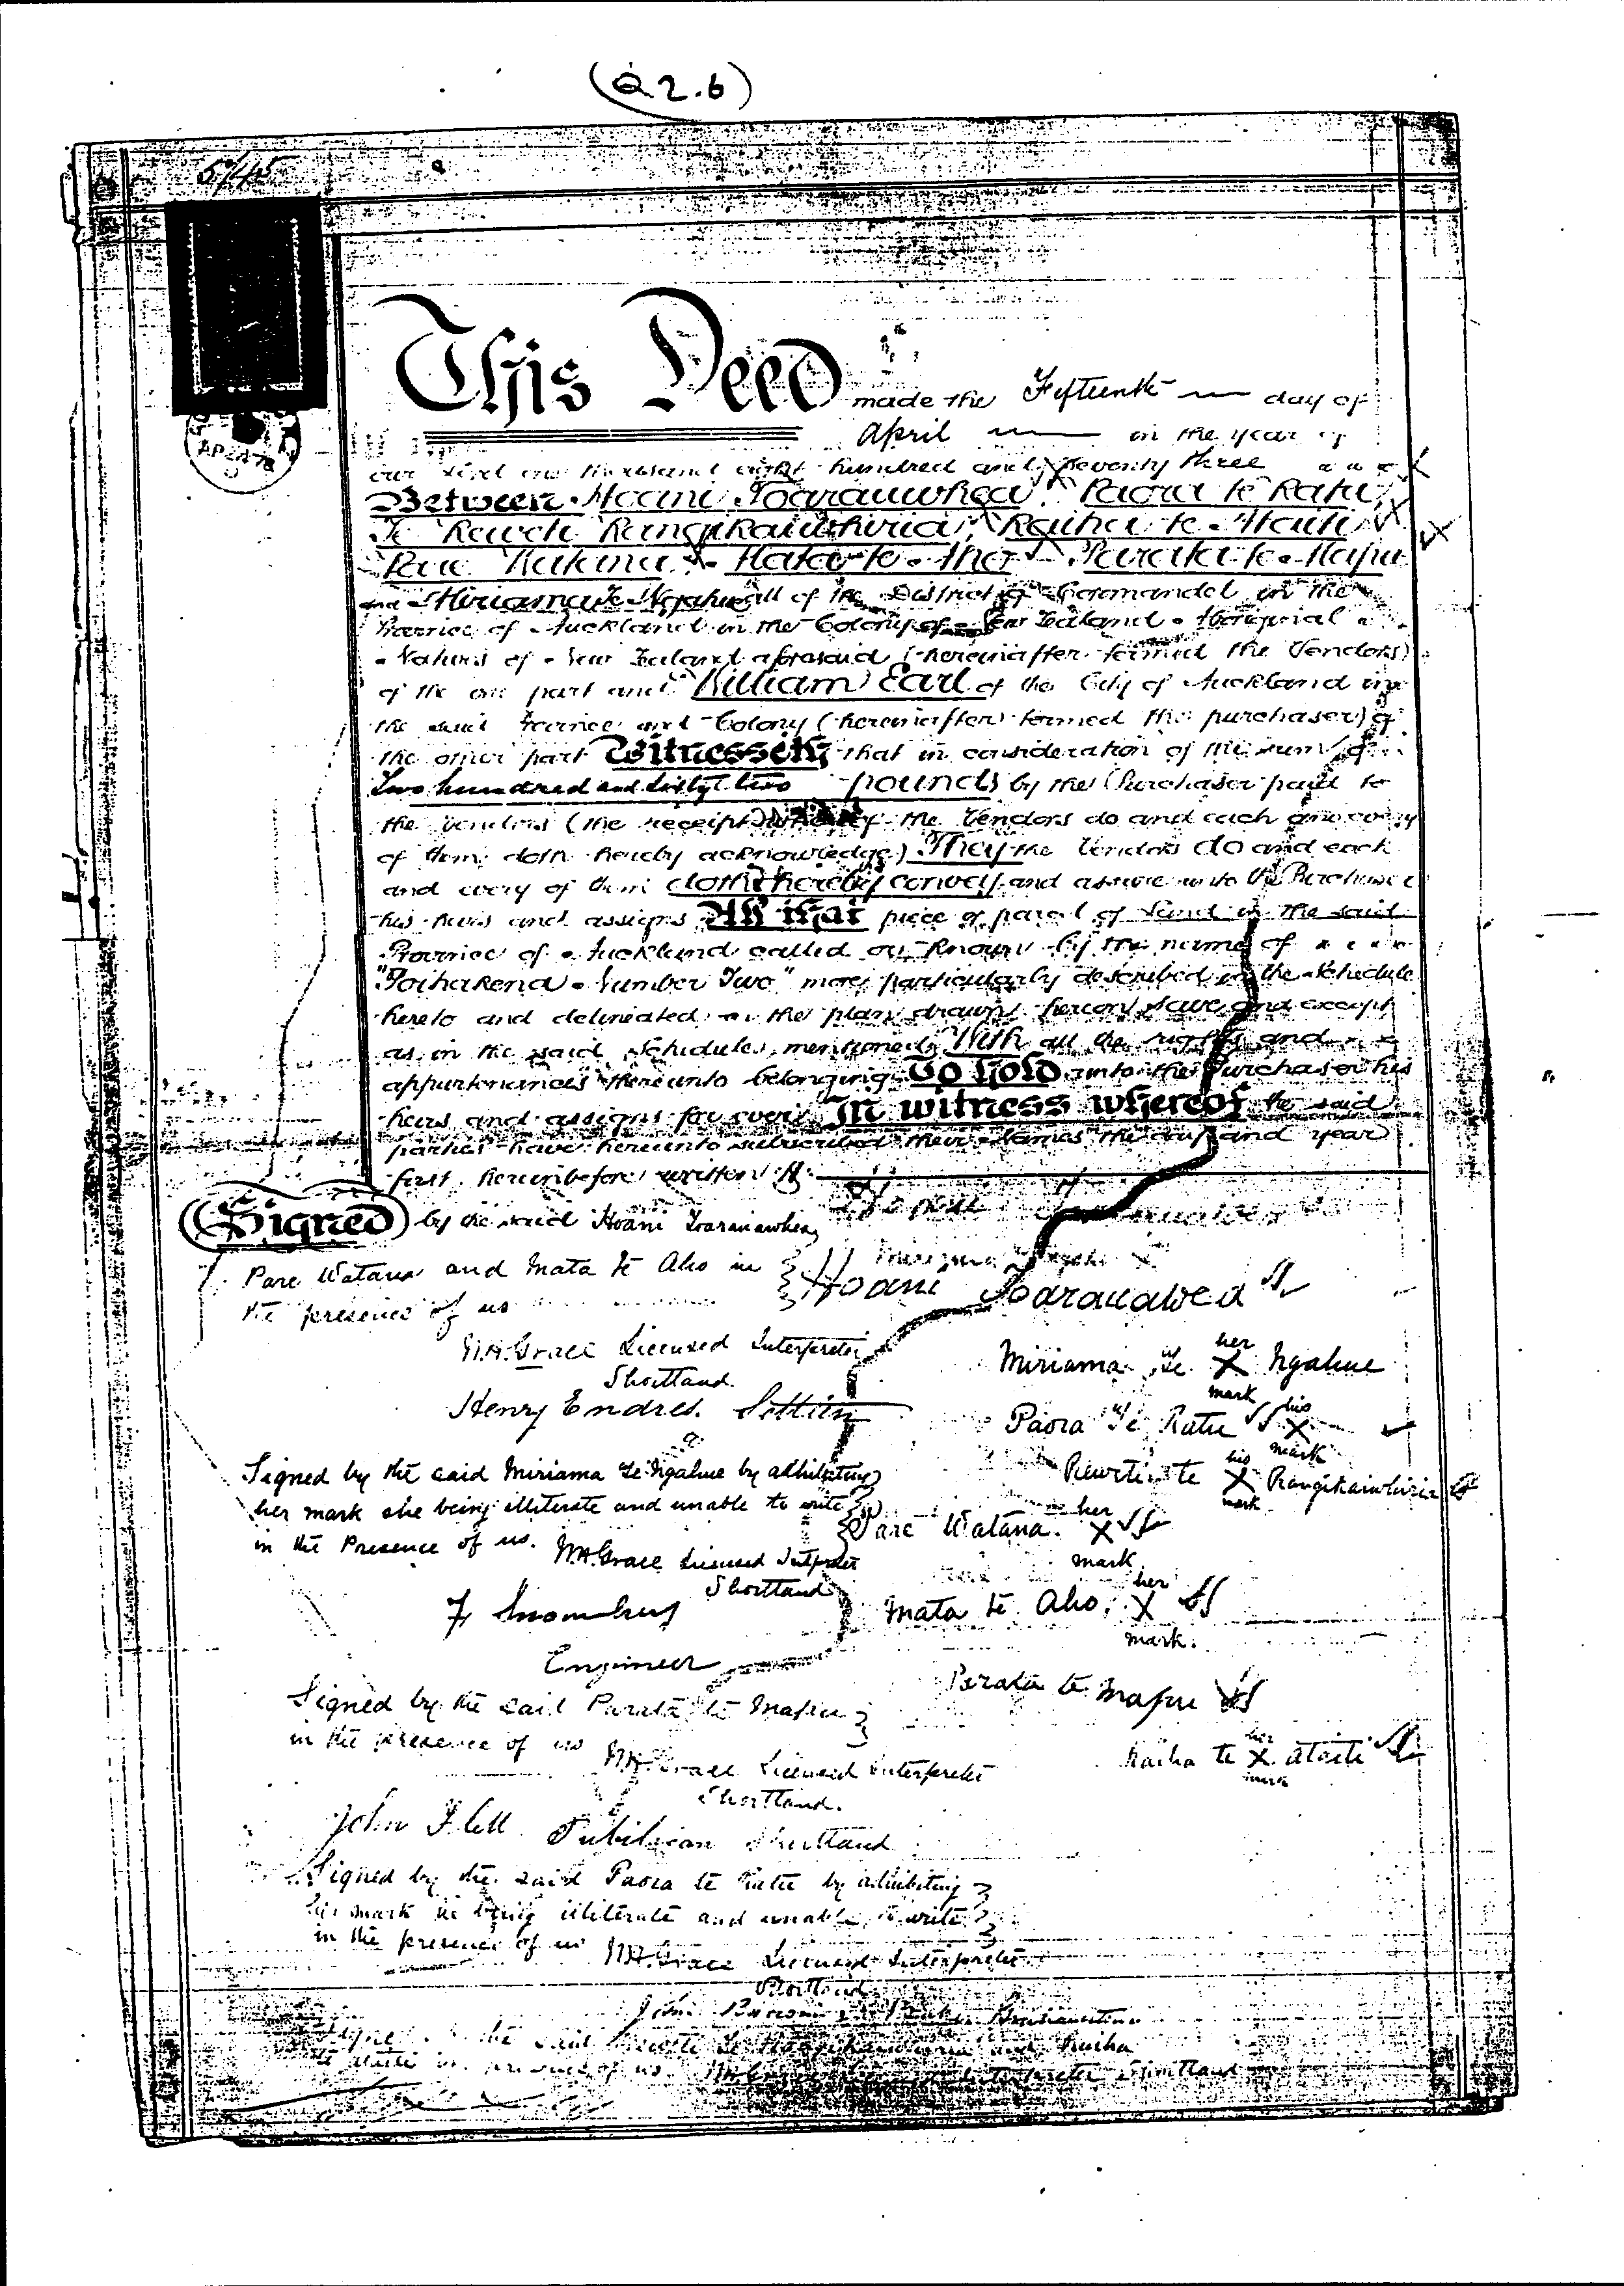 (Q2.6)
5/45
This Deed made the Fifteenth day of
April in the year of
our Lord one thousand eight hundred and seventy three
Between Hoani Toarauwhea Paora te Ratu
Te Reweti Rangikaiwhiria, Raiha te Ataiti
Pare Watana Mata te Aho Parata te Mapu
and Miriama Te Ngahue all of the District of Coromandel in the
Province of Auckland in the Colony of New Zealand Aboriginal
Natives of New Zealand aforesaid (hereinafter termed the Vendors)
of the one part and William Earl of the City of Auckland in
the said Province and Colony (hereinafter termed the purchaser) of
the other part Witnesseth that in consideration of the sum of
Two hundred and sixty two pounds by the Purchaser paid to
the Vendors (the receipt whereof the Vendors do and each and every
of them doth hereby acknowledge) They the Vendors do and each
and every of them doth hereby convey and assure unto the Purchaser
his heirs and assigns All that piece or parcel of Land in the said
Province of Auckland called or known by the name of
"Toiharena Number Two" more particularly described in the Schedule
hereto and delineated on the plan drawn hereon save and except
as in the said Schedule mentioned With all the rights and
appurtenances thereunto belonging To Hold unto the Purchaser his
heirs and assigns for ever In witness whereof the said
parties have hereunto subscribed their names the day and year
first hereinbefore written
Signed by the said Hoani Toarauwhea
Pare Watana and Mata te Aho in
the presence of us
Hoani Toarauwea
W.H. Grace Licensed Interpreter
Shortland
Miriama Te her X mark Ngahue
Henry Endres.
Paora Te Ratu his X mark
Signed by the said Miriama Te Ngahue by adhibiting
her mark she being illiterate and unable to write
in the Presence of us.
Reweti te his X mark Rangikaiwhiria
Pare Watana her X mark
W.H. Grace Licensed Interpreter
Shortland
Mata te Aho her X mark
Engineer
Parata te Mapu
Signed by the said Parata te Mapu
in the presence of us
Raiha te her X mark Ataiti
W.H. Grace Licensed Interpreter
Shortland.
John Flett Publican Shortland
Signed by the said Paora te Ratu by adhibiting
his mark he being illiterate and unable to write
in the presence of us
W.H. Grace Licensed Interpreter
Shortland
Signed by the said Reweti Te Rangikaiwhiria and Raiha
te Ataiti in presence of us. W.H. Grace Licensed Interpreter Shortland